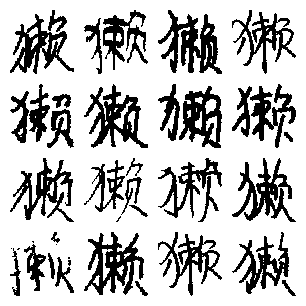 獭獭獭獭
獭獭獭獭
獭獭獭獭
獭獭獭獭